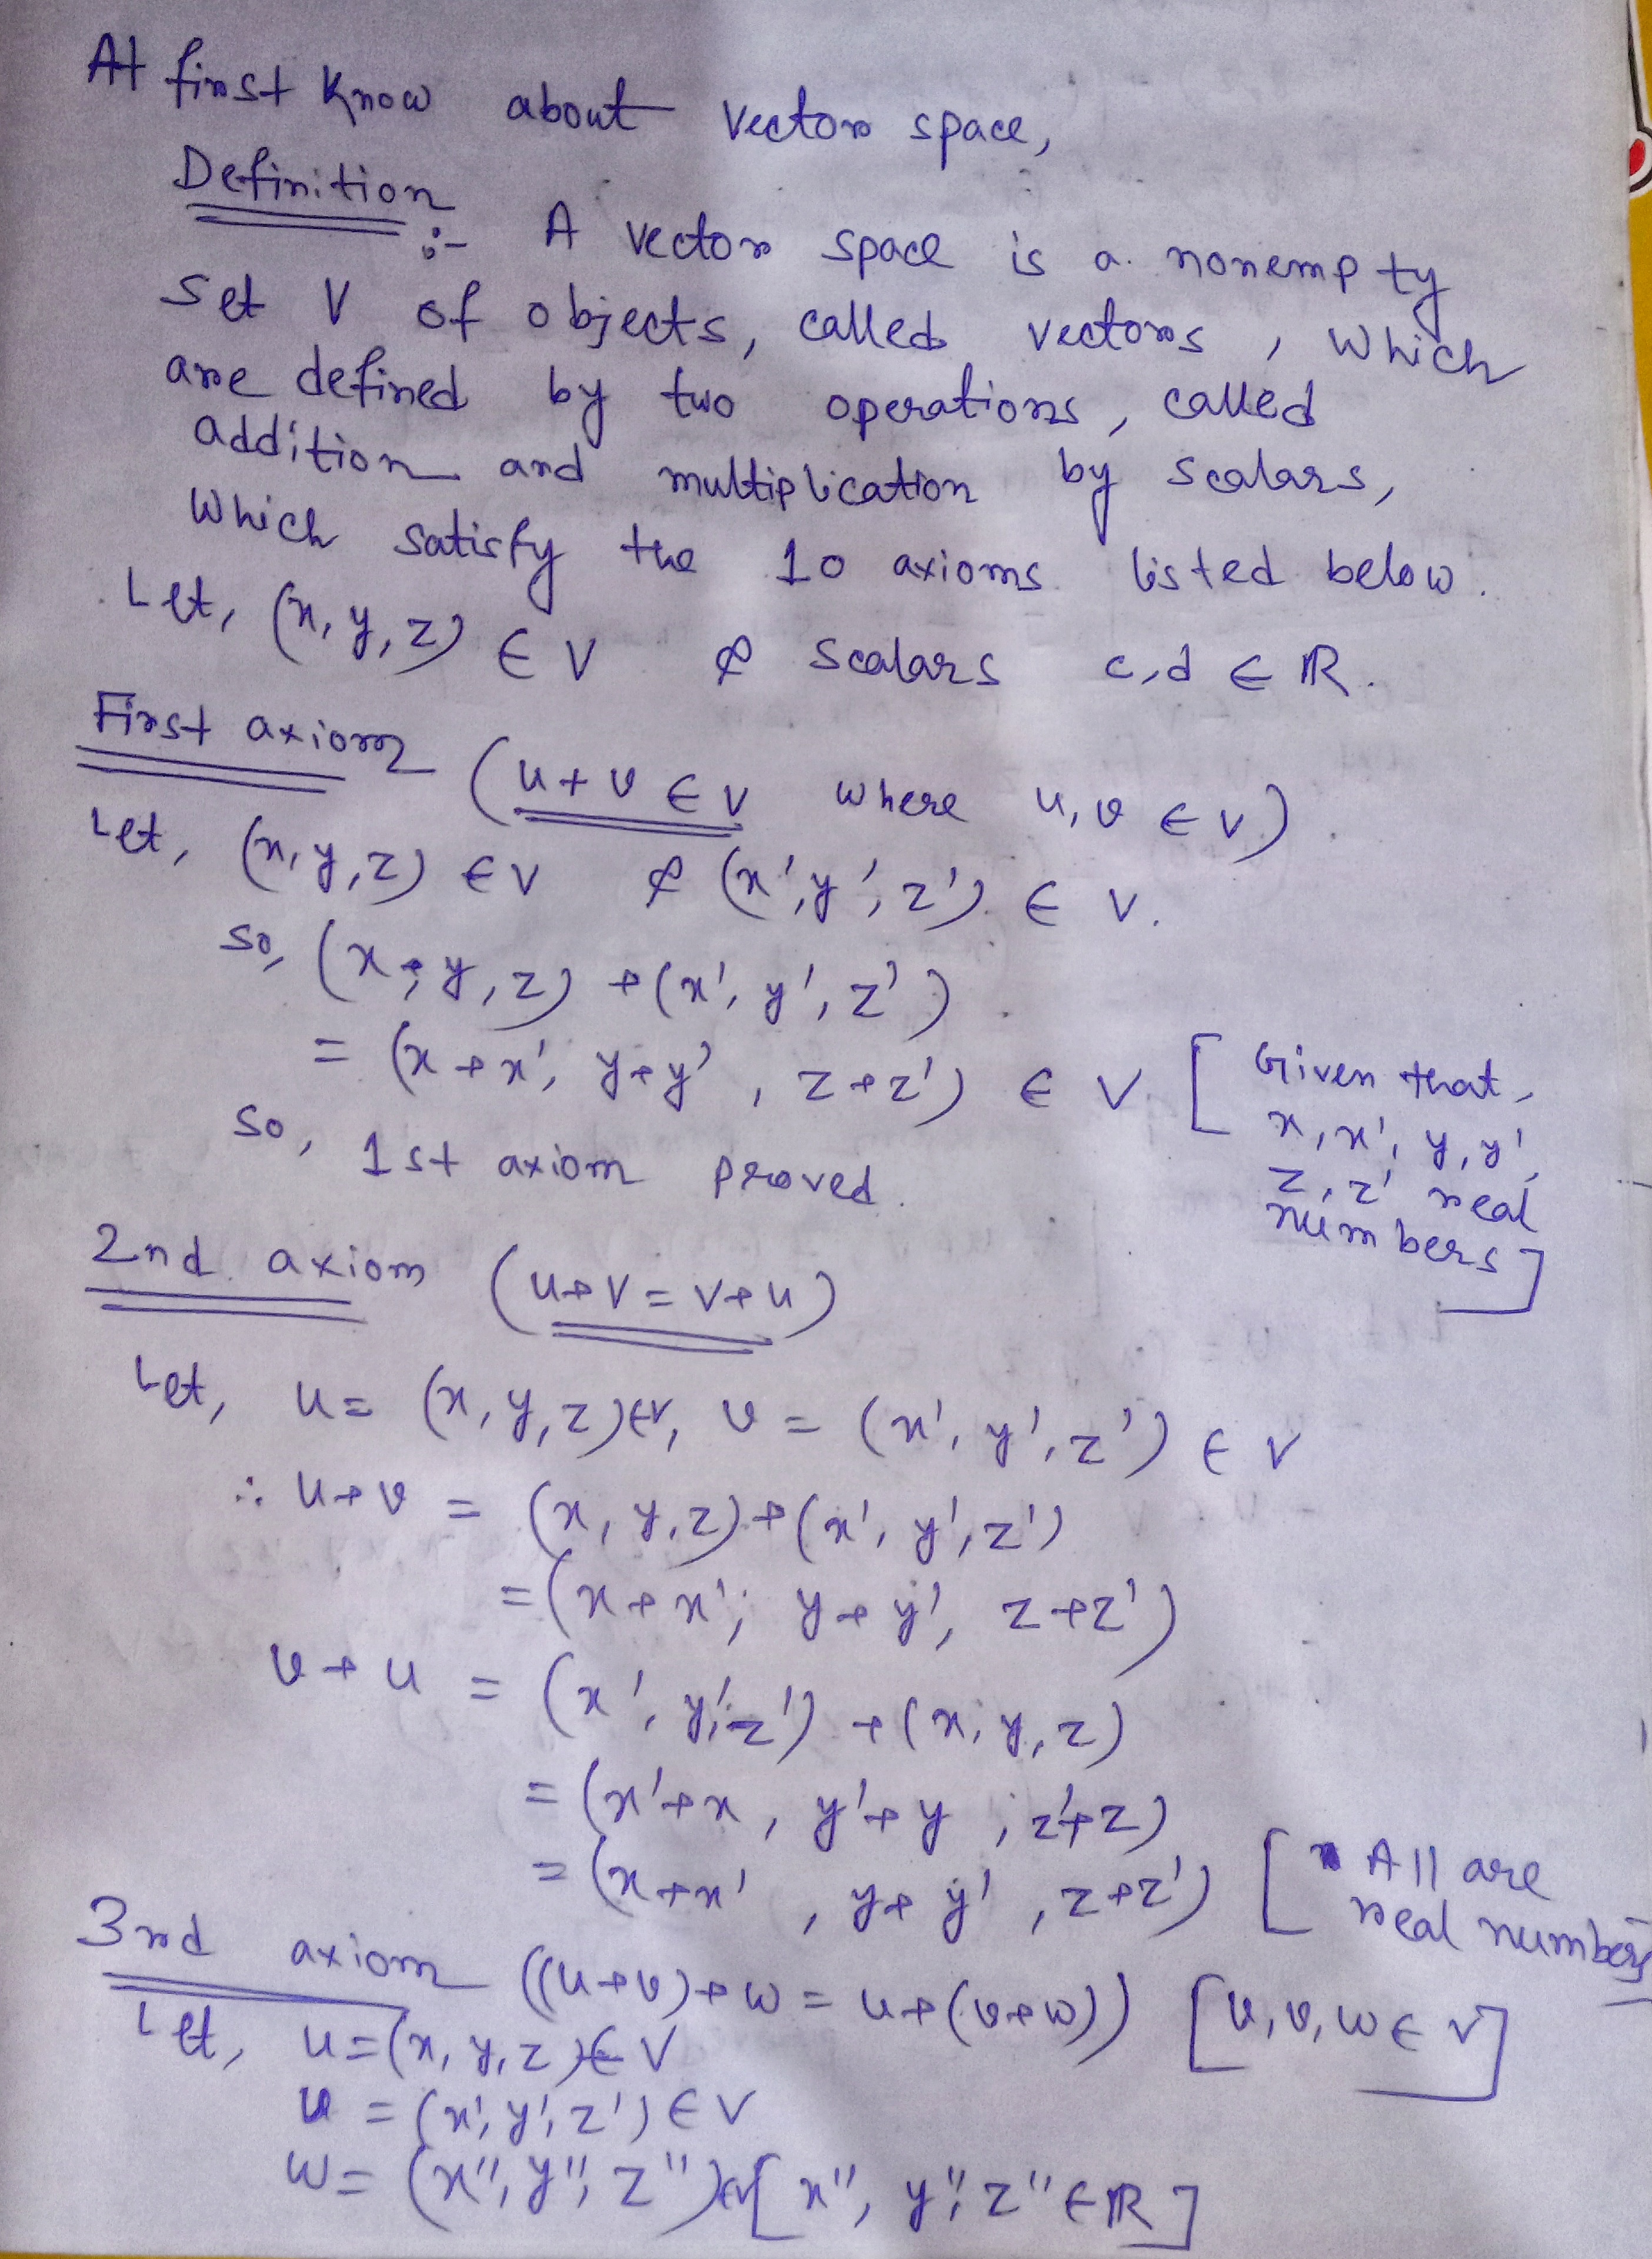 At first know about vector space,
Definition :- A vector space is a nonempty
set V of objects, called vectors, which
are defined by two operations, called
addition and multiplication by scalars,
which satisfy the 10 axioms listed below.
Let, (x, y, z) ∈ V & scalars c,d ∈ ℝ.
First axiom (u+v ∈ V where u, v ∈ V).
Let, (x, y, z) ∈ V & (x', y', z') ∈ V.
so, (x, y, z) + (x', y', z')
= (x+x', y+y', z+z') ∈ V. [Given that,
x, x', y, y',
z, z' real
numbers]
So, 1st axiom proved.
2nd axiom (u+v = v+u)
Let, u = (x, y, z)∈V, v = (x', y', z') ∈ V
∴ u+v = (x, y, z)+(x', y', z')
=(x+x', y+y', z+z')
v+u = (x', y', z') + (x, y, z)
= (x'+x, y'+y, z'+z)
= (x+x', y+y', z+z') [All are
real numbers
3rd axiom ((u+v)+w = u+(v+w)) [u, v, w ∈ V]
Let, u=(x, y, z)∈V
v = (x', y', z')∈V
w= (x'', y'', z'')∈V [x'', y'', z''∈ℝ]